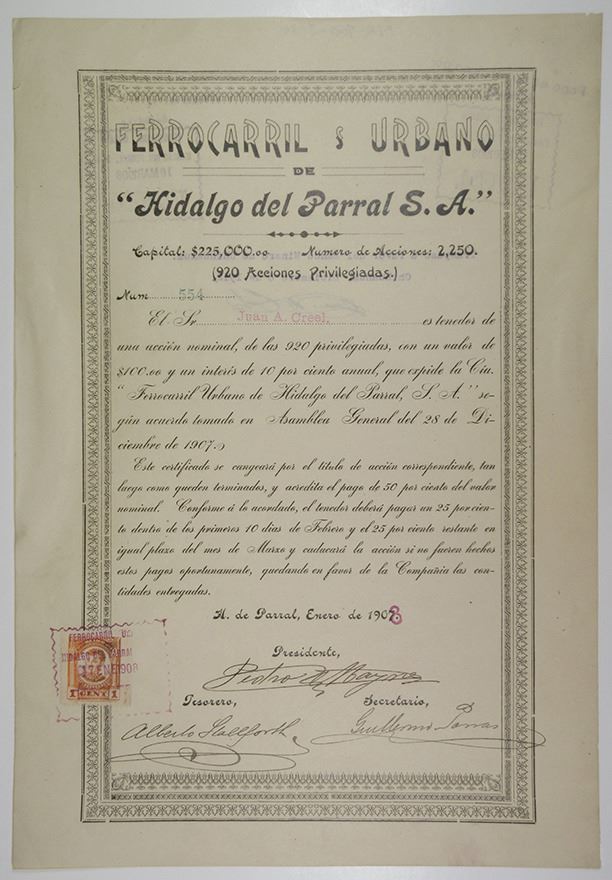 FERROCARRIL s URBANO
DE
“Hidalgo del Parral S. A.”
Capital: $225,000.00 Numero de Acciones: 2,250.
(920 Acciones Privilegiadas.)
Num. 554
El Sr. Juan A. Creel, es tenedor de
una acción nominal, de las 920 privilegiadas, con un valor de
$100.00 y un interés de 10 por ciento anual, que expide la Cía.
“Ferrocarril Urbano de Hidalgo del Parral, S. A.” se-
gún acuerdo tomado en Asamblea General del 28 de Di-
ciembre de 1907.
Este certificado se cangeará por el título de acción correspondiente, tan
luego como queden terminados, y acredita el pago de 50 por ciento del valor
nominal. Conforme á lo acordado, el tenedor deberá pagar un 25 por cien-
to dentro de los primeros 10 días de Febrero y el 25 por ciento restante en
igual plazo del mes de Marzo y caducará la acción si no fueren hechos
estos pagos oportunamente, quedando en favor de la Compañía las can-
tidades entregadas.
H. de Parral, Enero de 1908
FERROCARRIL
HIDALGO DEL PARRAL
17 ENE 1908
1 CENT 1
Presidente,
Pedro
Tesorero, Secretario,
Alberto Stallforth Guillermo Porras